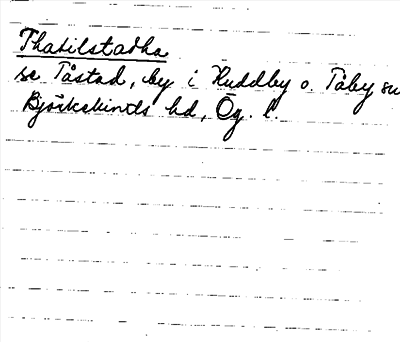 Thakilstadha
se Tåstad, by i Kuddby o. Tåby sn
Björkekinds hd, Ög. l.